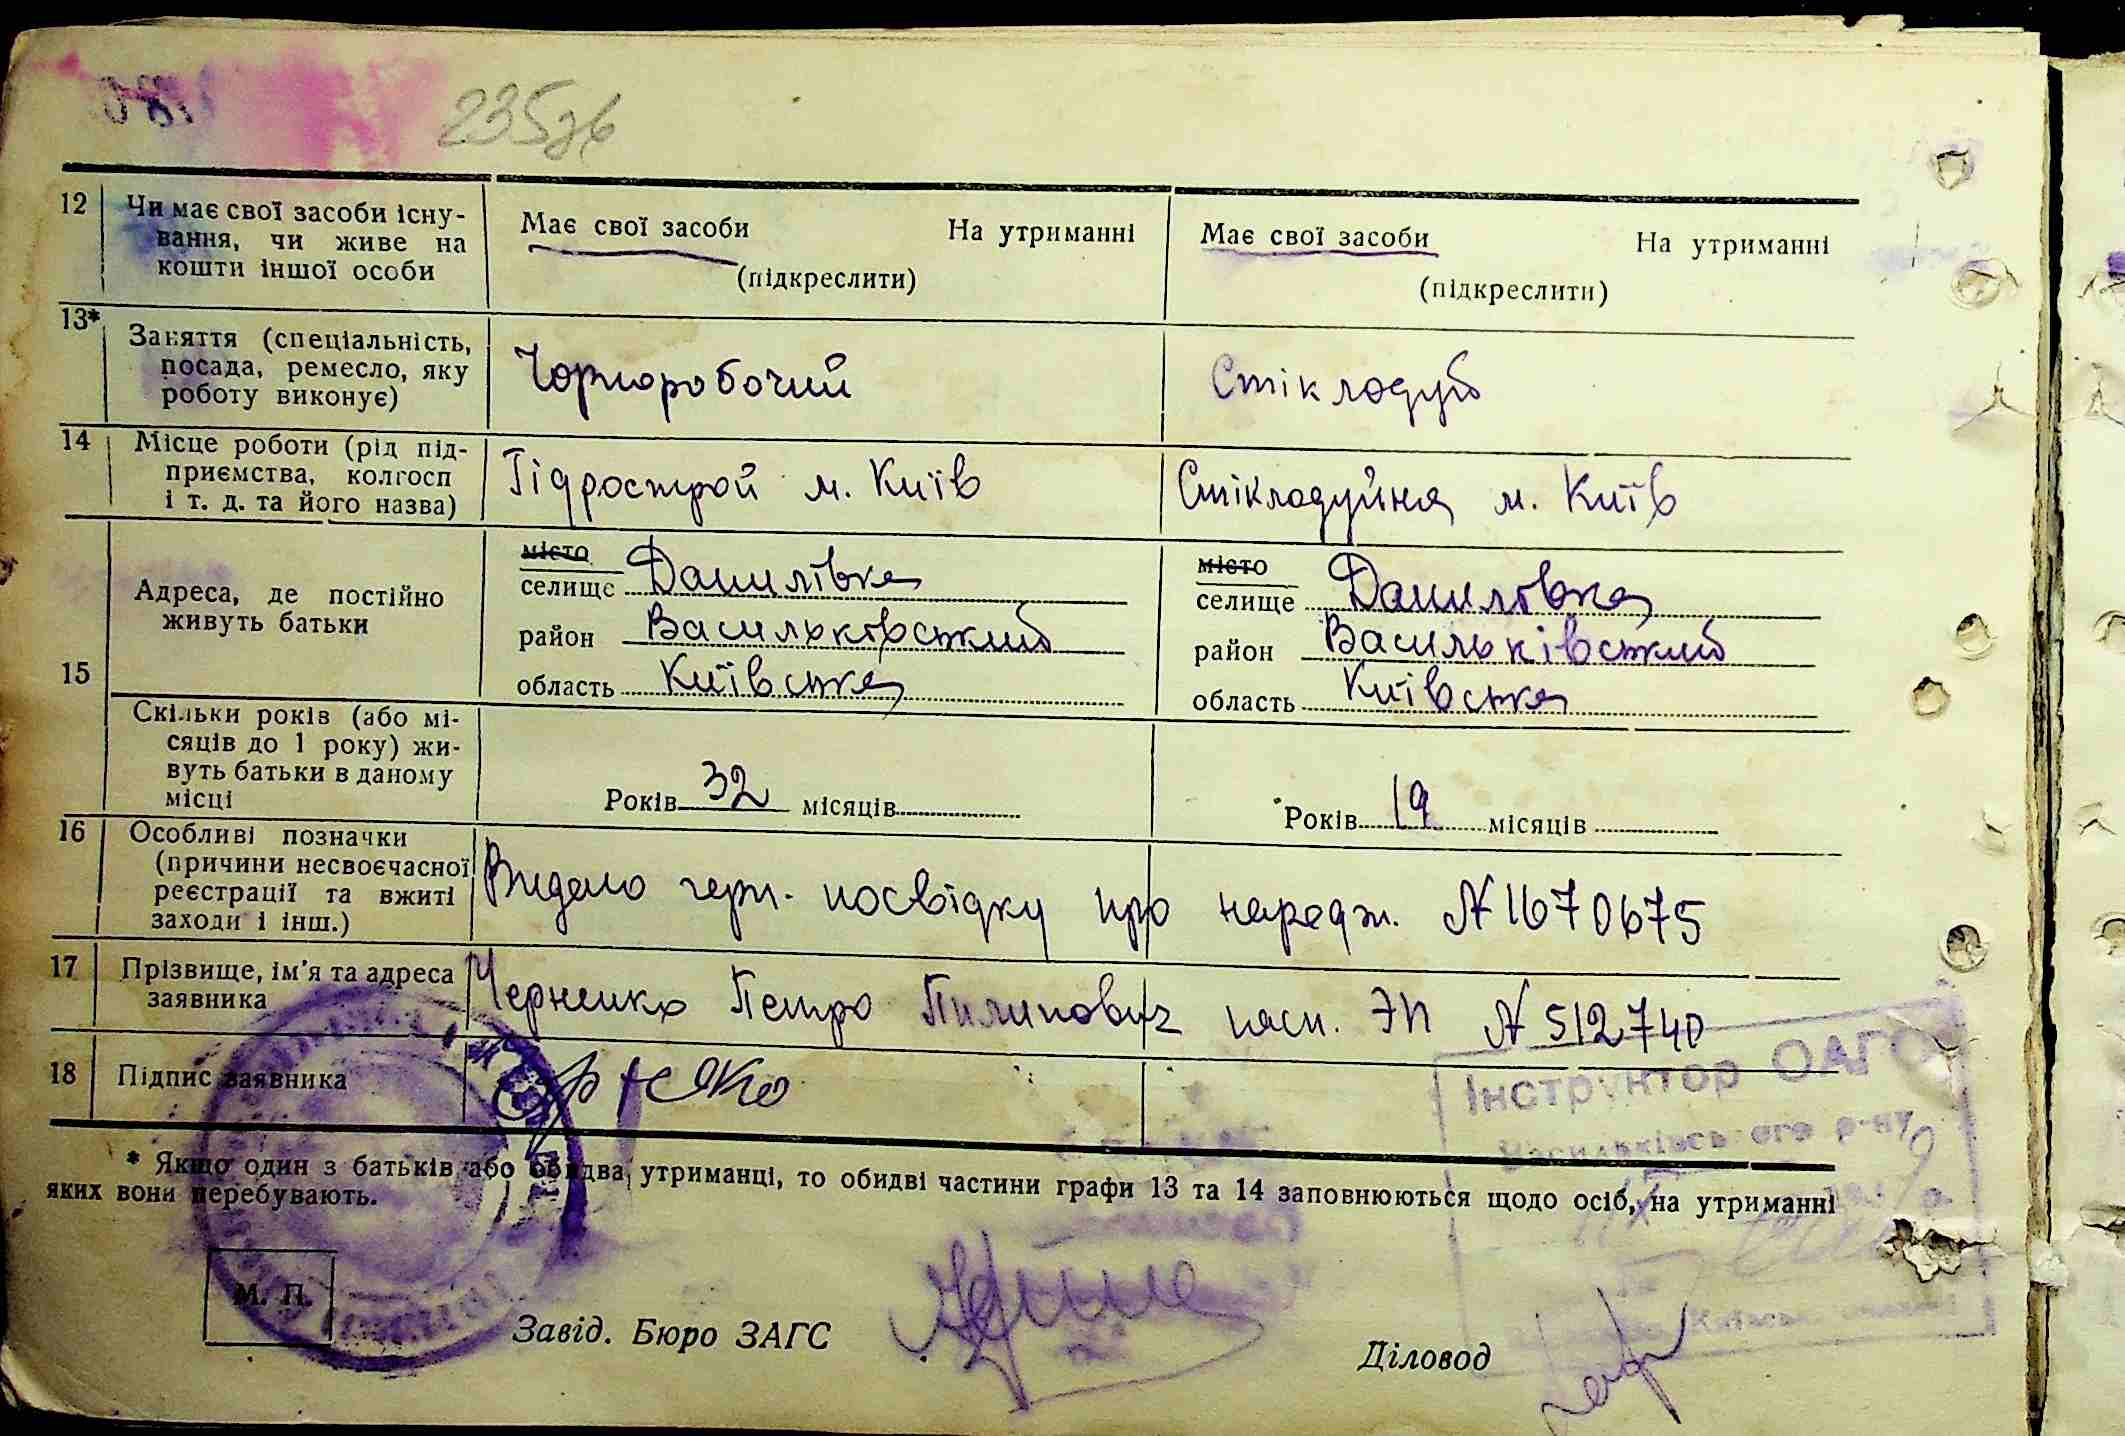 235зв
12 Чи має свої засоби існу-
вання, чи живе на
кошти іншої особи
Має свої засоби На утриманні
(підкреслити)
Має свої засоби На утриманні
(підкреслити)
13* Заняття (спеціальність,
посада, ремесло, яку
роботу виконує)
Чорноробочий
Стіклодув
14 Місце роботи (рід під-
приємства, колгосп
і т. д. та його назва)
Гідрострой м. Київ
Стіклодуйня м. Київ
15 Адреса, де постійно
живуть батьки
місто
селище Данилівка
район Васильківський
область Київська
місто
селище Данилівка
район Васильківський
область Київська
Скільки років (або мі-
сяців до 1 року) жи-
вуть батьки в даному
місці
Років 32 місяців
Років 19 місяців
16 Особливі позначки
(причини несвоєчасної
реєстрації та вжиті
заходи і інш.)
Видано герп. посвідку про народж. № 1670675
17 Прізвище, ім'я та адреса
заявника
Черненко Петро Пилипович пасп. ЭП № 512740
18 Підпис заявника
* Якщо один з батьків або обидва утриманці, то обидві частини графи 13 та 14 заповнюються щодо осіб, на утриманні
яких вони перебувають.
Інструктор ОАГС
Васильківського р-ну
М. П.
Завід. Бюро ЗАГС
Діловод